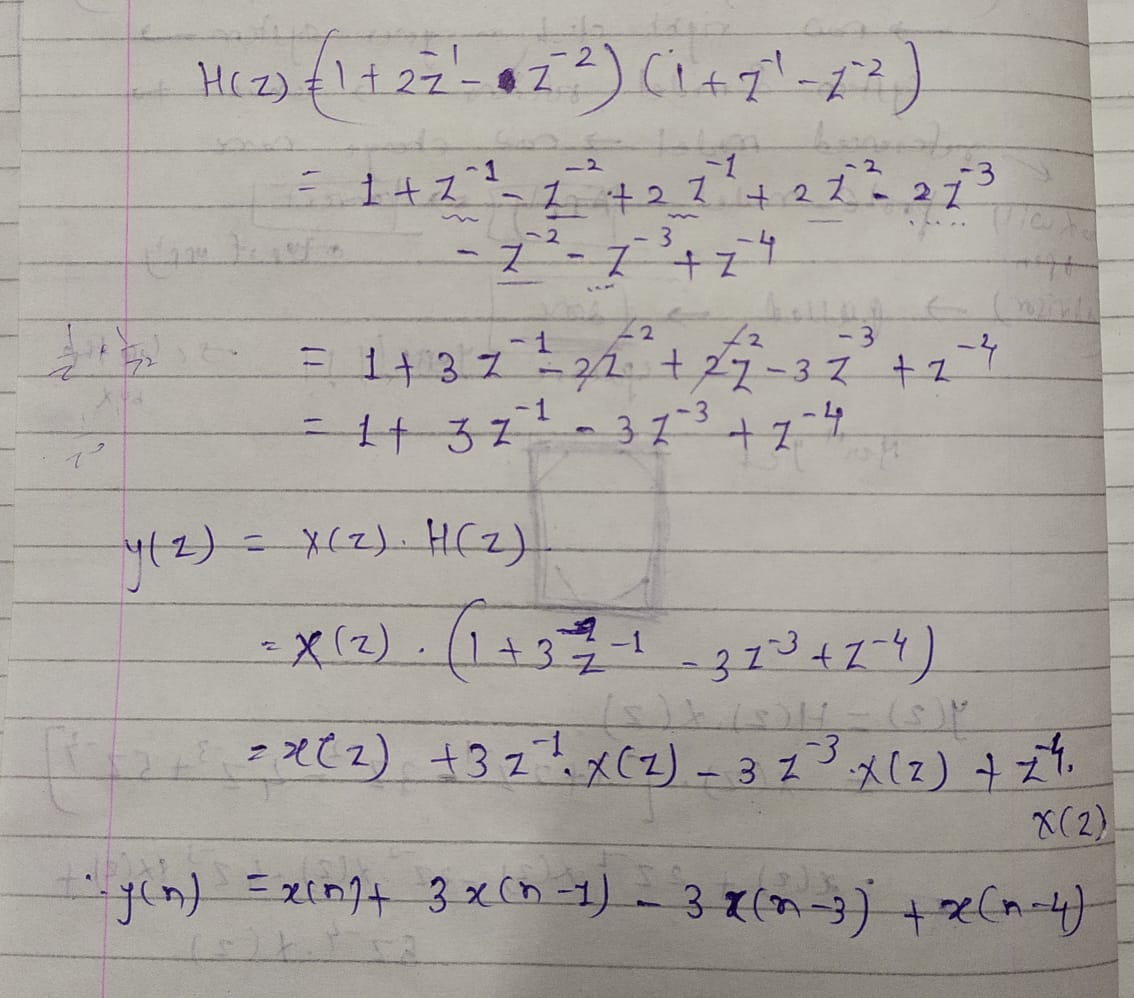 H(z) = (1 + 2z⁻¹ - z⁻²) (1 + z⁻¹ - z⁻²)
= 1 + z⁻¹ - z⁻² + 2z⁻¹ + 2z⁻² - 2z⁻³
- z⁻² - z⁻³ + z⁻⁴
= 1 + 3z⁻¹ - 2z⁻² + 2z⁻² - 3z⁻³ + z⁻⁴
= 1 + 3z⁻¹ - 3z⁻³ + z⁻⁴
y(z) = X(z). H(z)
= X(z) . (1 + 3z⁻¹ - 3z⁻³ + z⁻⁴)
= x(z) + 3z⁻¹. X(z) - 3z⁻³.X(z) + z⁻⁴.
X(z)
∴ y(n) = x(n) + 3x(n-1) - 3x(n-3) + x(n-4)